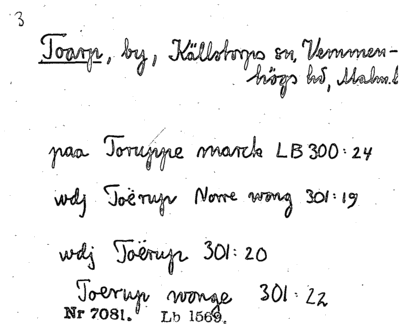 3
Toarp, by, Källstorps sn, Vemmen-
högs hd, Malm.l
paa Toruppe marck LB 300:24
wdj Toërup Norre wong 301:19
wdj Toërup 301:20
Toerup wonge 301:22
Nr 7081. Lb 1569.